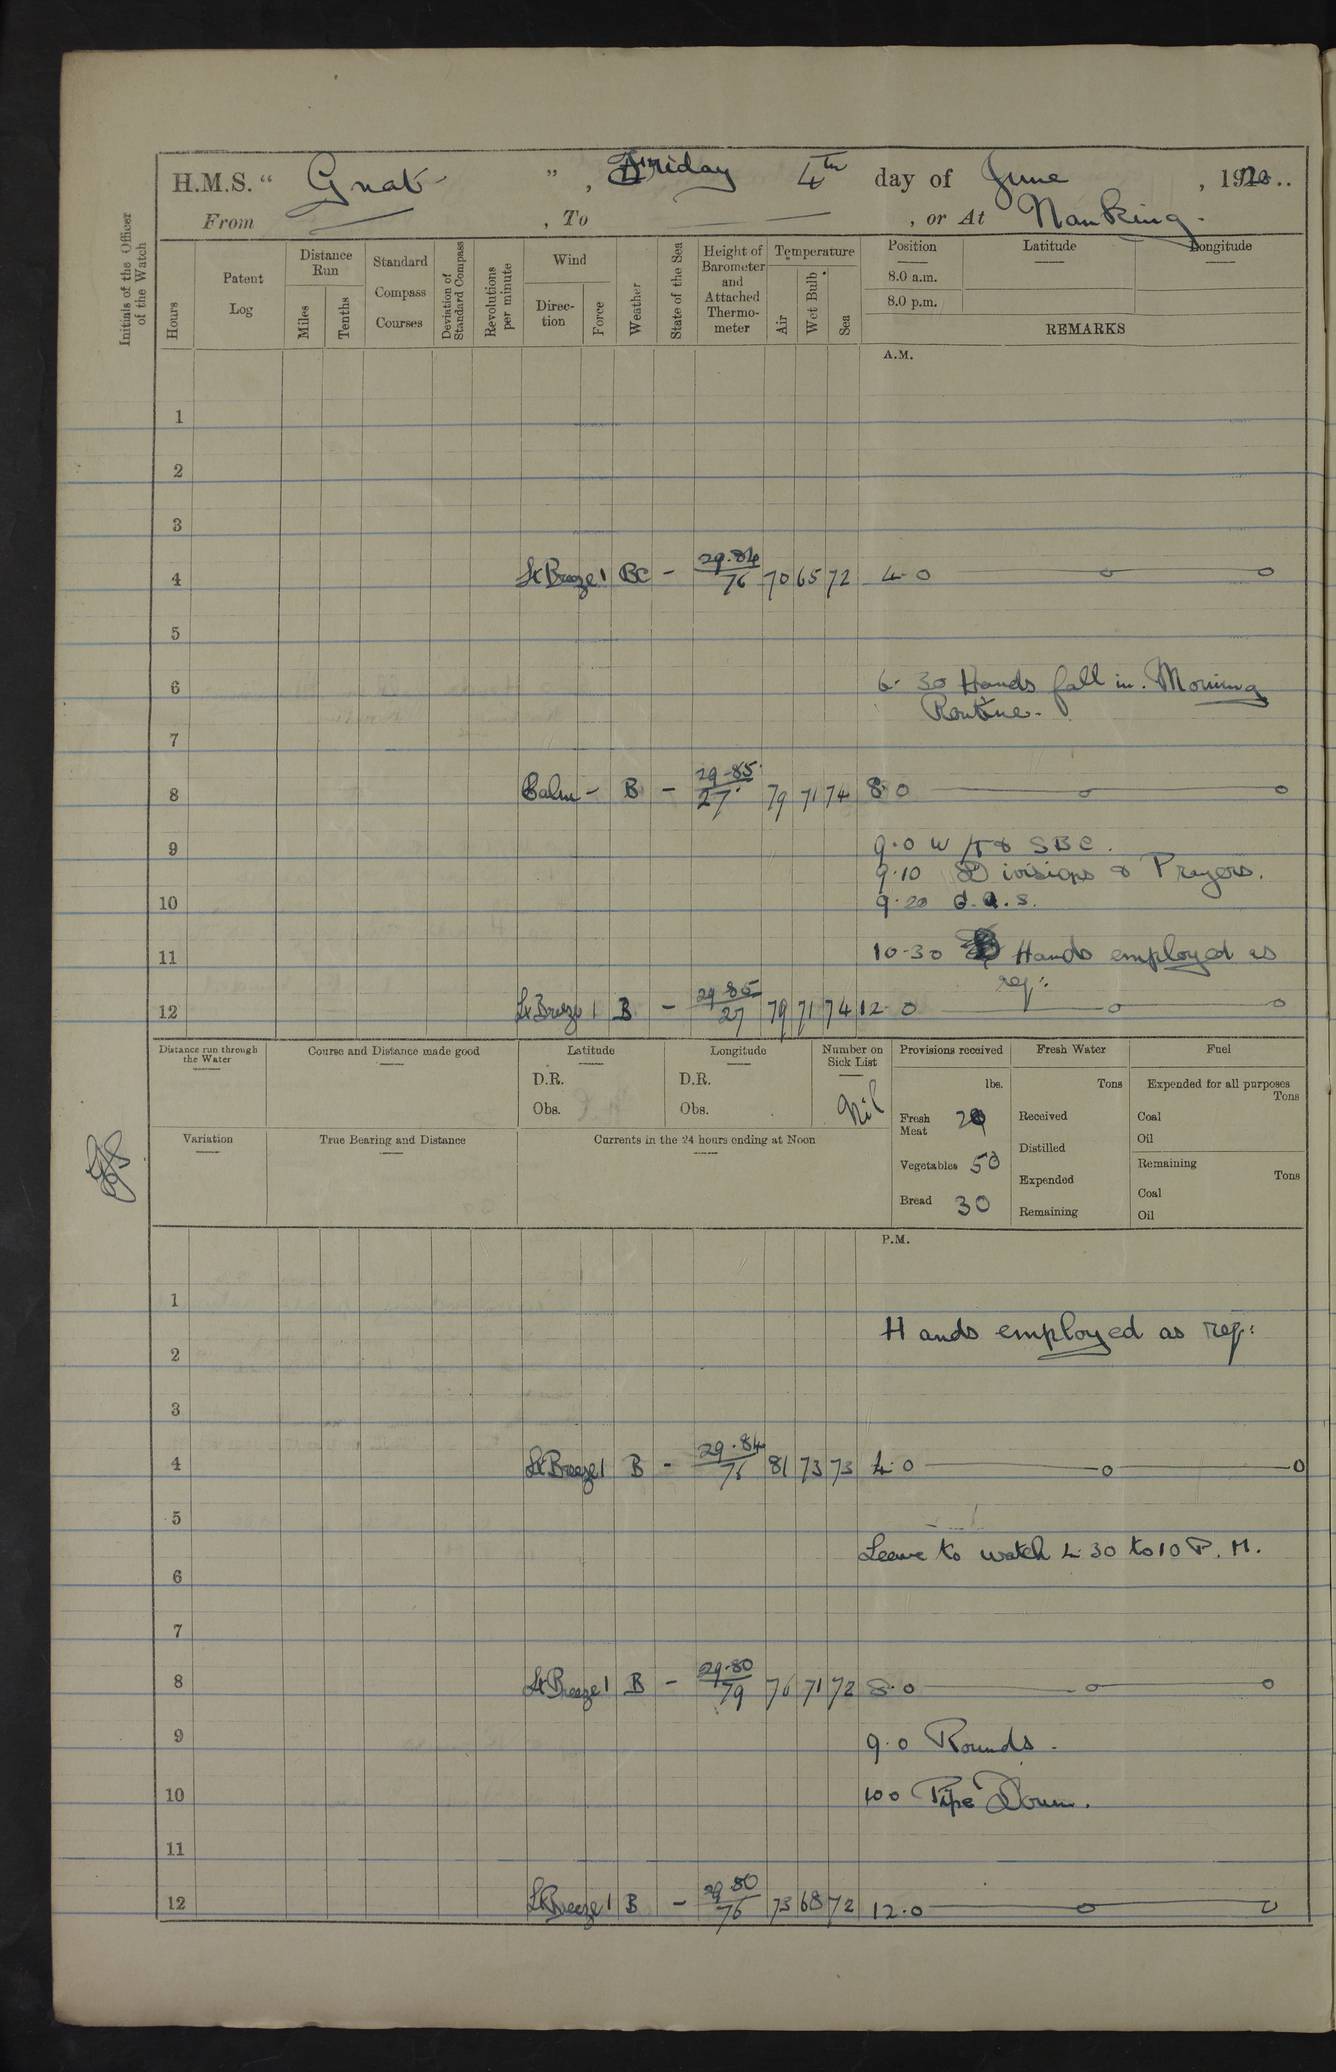 H.M.S. “ Gnat ” , Friday 4th day of June , 1920..
From — , To — , or At Nanking.
Initials of the Officer of the Watch
Hours
Patent Log
Distance Run
Miles
Tenths
Standard Compass Courses
Deviation of Standard Compass
Revolutions per minute
Wind
Direc-tion
Force
Weather
State of the Sea
Height of Barometer and Attached Thermo-meter
Temperature
Air
Wet Bulb
Sea
Position
8.0 a.m.
8.0 p.m.
Latitude
Longitude
REMARKS
A.M.
1
2
3
4 Lt Breeze 1 BC – 29.84/76 70 65 72 4.0
5
6 6.30 Hands fall in. Morning
Routine.
7
8 Calm – B – 29.85/27 79 71 74 8.0
9 9.0 W/T & SBC.
9.10 Divisions & Prayers.
10 9.20 d.a.s.
11 10.30 Hands employed as
req:
12 Lt Breeze 1 B – 29 85/27 79 71 74 12.0
Distance run through the Water
Course and Distance made good
Latitude
D.R.
Obs.
Longitude
D.R.
Obs.
Number on Sick List
Nil
Provisions received
lbs.
Fresh Meat
Vegetables 50
Bread 30
Fresh Water
Tons
Received
Distilled
Expended
Remaining
Fuel
Expended for all purposes
Tons
Coal
Oil
Remaining
Tons
Coal
Oil
Variation
True Bearing and Distance
Currents in the 24 hours ending at Noon
P.M.
1
Hands employed as req:
2
3
4 Lt Breeze 1 B – 29.84/76 81 73 73 4.0
5
Leave to watch 4.30 to 10 P.M.
6
7
8 Lt Breeze 1 B – 29.80/79 76 71 72 8.0
9 9.0 Rounds.
10 10 0 Pipe Down.
11
12 Lt Breeze 1 B – 29 80/76 73 68 72 12.0